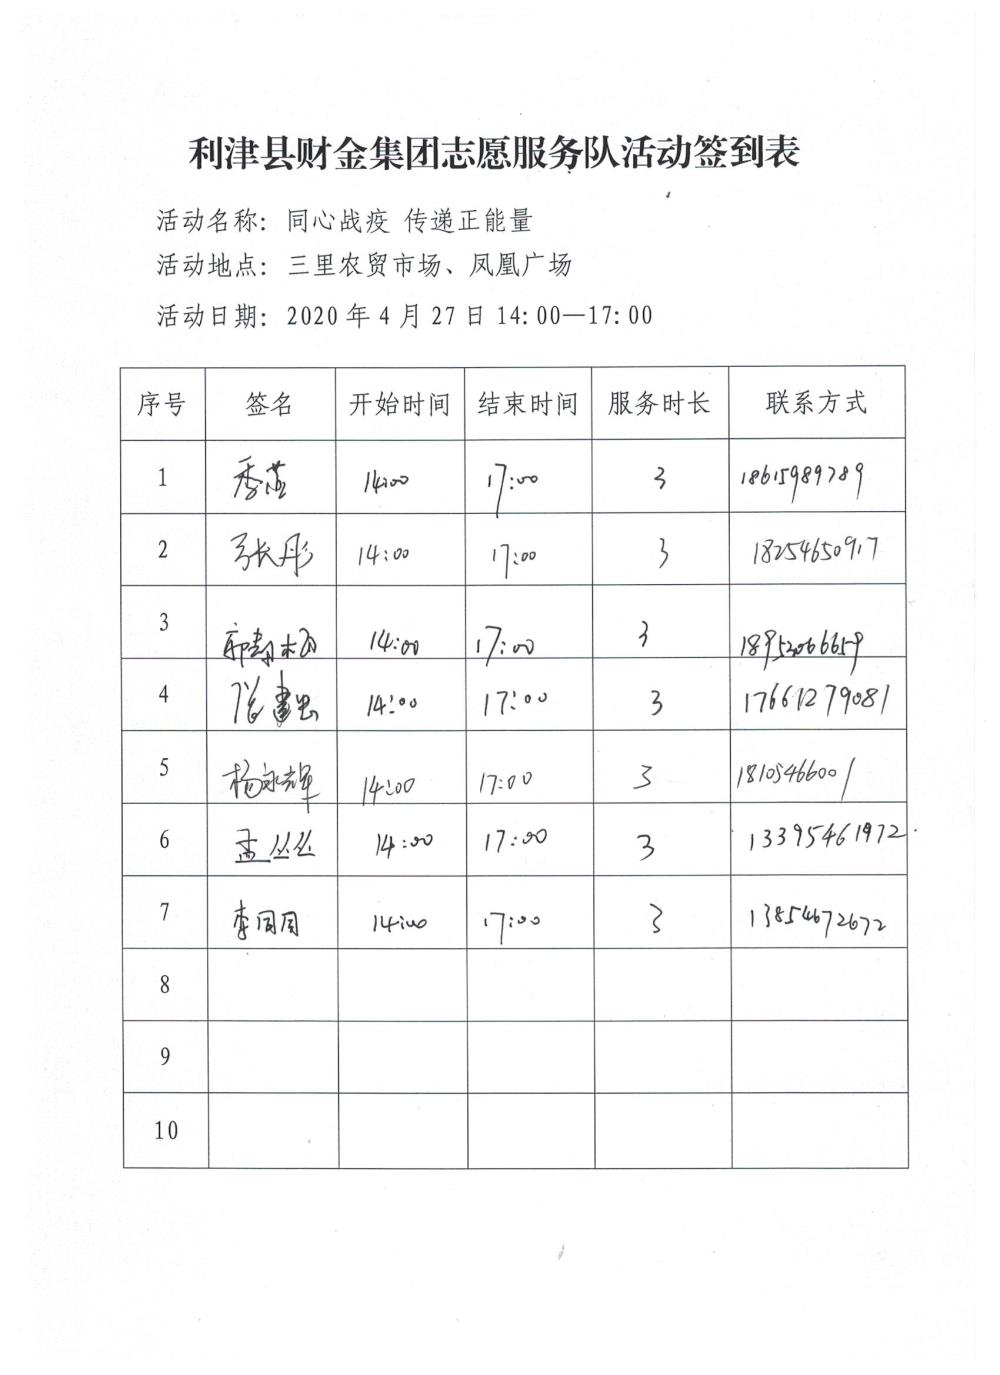 利津县财金集团志愿服务队活动签到表
活动名称：同心战疫 传递正能量
活动地点：三里农贸市场、凤凰广场
活动日期：2020年4月27日14:00—17:00
序号 签名 开始时间 结束时间 服务时长 联系方式
1 季燕 14:00 17:00 3 18615989789
2 张彤 14:00 17:00 3 18254650917
3 14:00 17:00 3 18952066659
4 14:00 17:00 3 17661279081
5 杨永辉 14:00 17:00 3 18105466001
6 孟丛丛 14:00 17:00 3 13395461972
7 李同同 14:00 17:00 3 13854672672
8
9
10